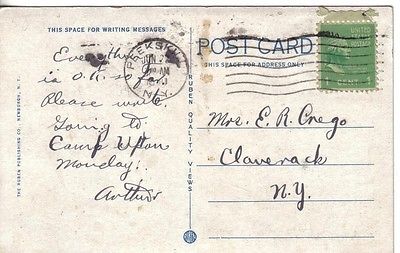 THIS SPACE FOR WRITING MESSAGES
POST CARD
THIS SPACE FOR ADDRESS ONLY
PEEKSKILL
JUN
AM
N.Y.
UNITED
POSTAGE
CENT
Everything
is O.K. so
Please write
Going to
Camp Upton
Monday.
Arthur
Mrs. E. R. Crego
Claverack
N.Y.
THE RUBEN PUBLISHING CO., NEWBURGH, N. Y.
RUBEN QUALITY VIEWS